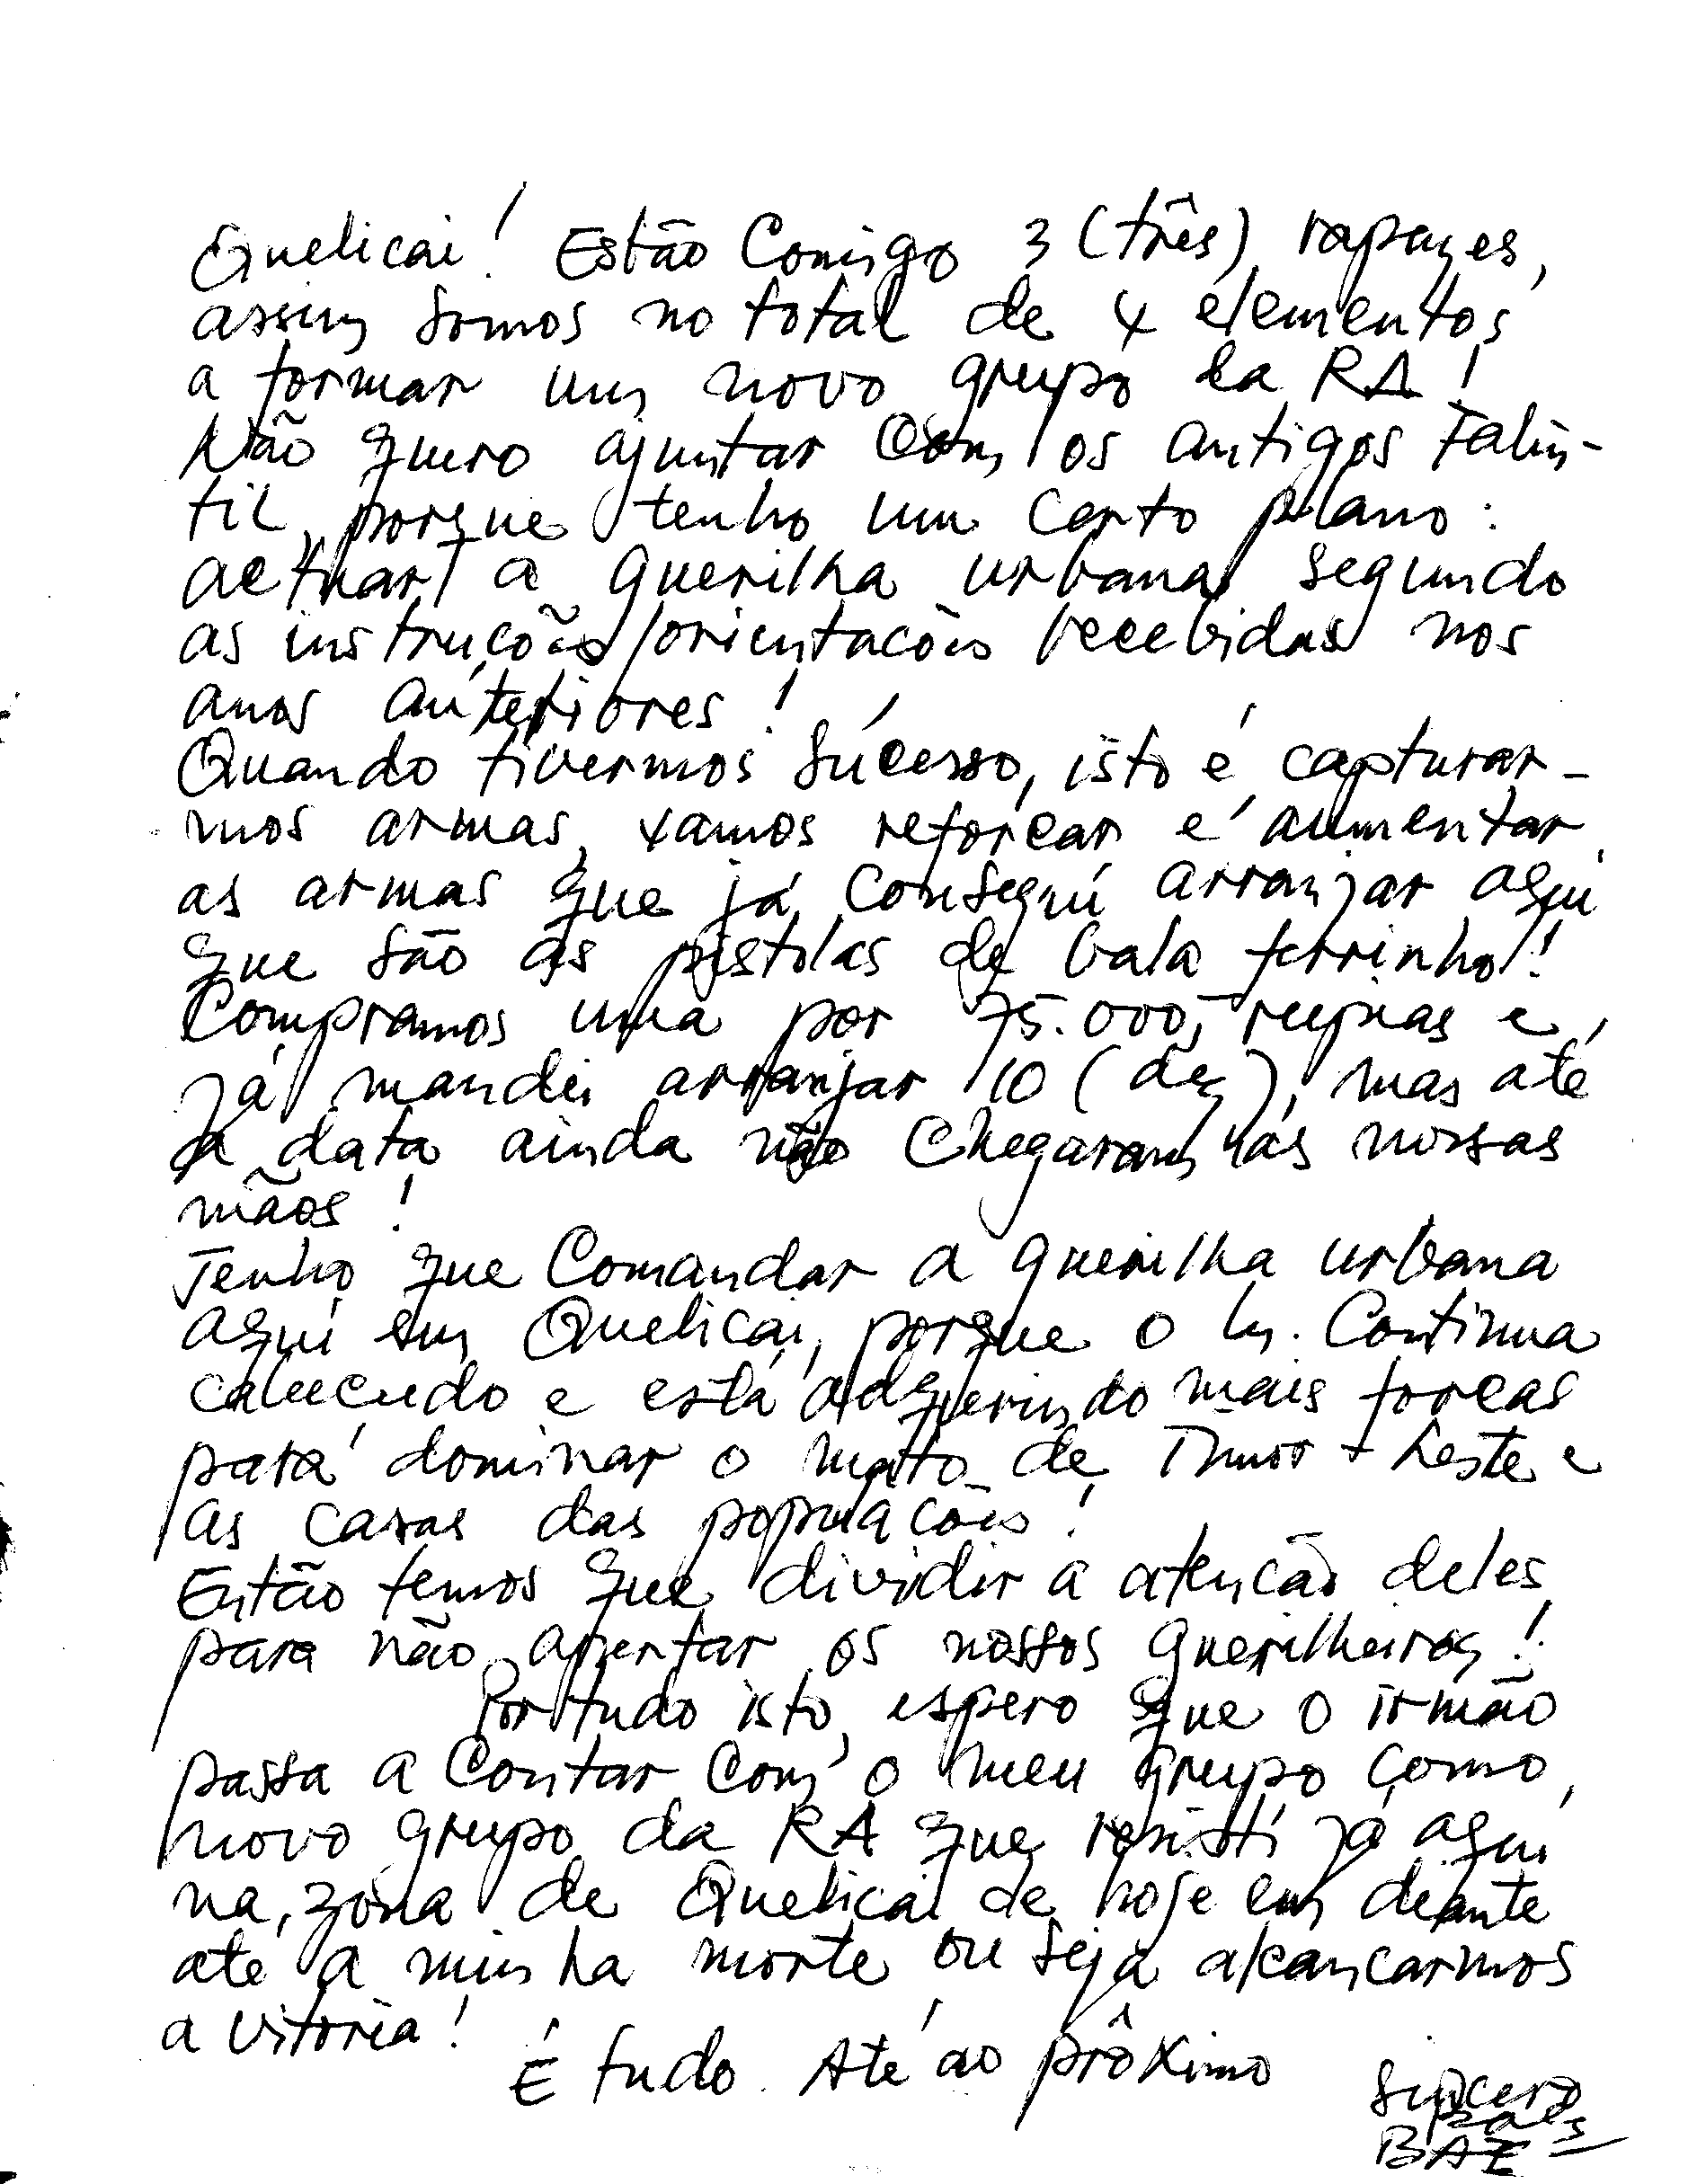 Quelicai! Estão Comigo 3 (três) rapazes,
assim somos no total de 4 elementos
a formar um novo grupo da RA!
Não quero ajuntar com os antigos Falin-
til, porque tenho um certo plano:
actuar a guerilha urbana segundo
as instrucões/orientacões recebidas nos
anos anteriores!
Quando tivermos sucesso, isto é, capturar-
mos armas, vamos reforcar e aumentar
as armas que já conseguí arranjar aquí
que são as pistolas de bala ferrinho!
Compramos uma por 75.000,- rupias e
já mandei arranjar 10 (dez), mas até
a data ainda não chegaram ás nossas
mãos!
Tenho que Comandar a guerilha urbana
aquí em Quelicai, porque o In. Continua
e está adquerindo mais forcas
para dominar o mato de Timor-Leste e
as casas das populacões!
Então temos que dividir a atencão deles
para não apertar os nossos guerilheiros!
Por tudo isto, espero que o irmão
passa a contar com o meu grupo como
novo grupo da RA que resisti já aquí
na zona de Quelicai de hoje em deante
até a minha morte ou seja alcancarmos
a vitoria!
É tudo. Até ao prôximo
Sincero